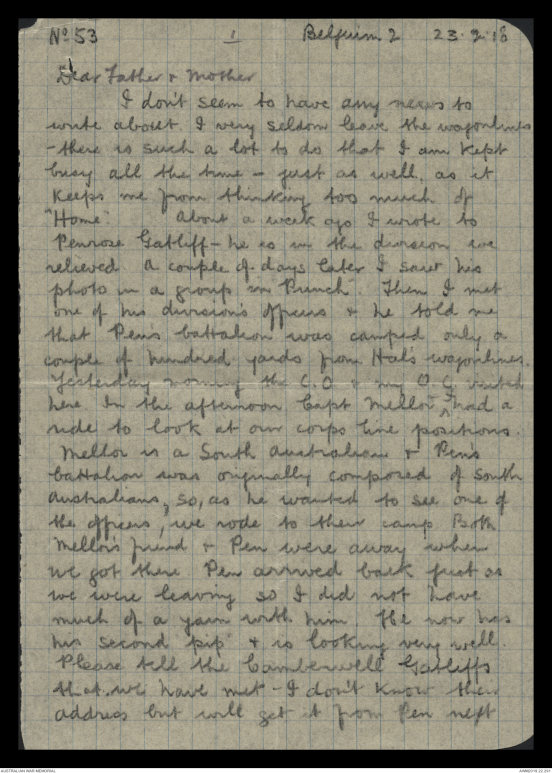 No 53 1 Belgium 2 23.2.18
Dear Father & Mother
I don't seem to have any news to
write about. I very seldom leave the wagonlines
- there is such a lot to do that I am kept
busy all the time - just as well, as it
keeps me from thinking too much of
"Home". About a week ago I wrote to
Penrose Gatliff - he is in the division we
relieved. A couple of days later I saw his
photo in a group in "Punch". Then I met
one of his division's officers & he told me
that Pen's battalion was camped only a
couple of hundred yards from Hal's wagonlines.
Yesterday morning the C.O. & my O.C. visited
here. In the afternoon Capt Mellor & I had a
ride to look at our corps line positions.
Mellor is a South Australian & Pen's
battalion was originally composed of South
Australians, so, as he wanted to see one of
the officers, we rode to their camp. Both
Mellor's friend & Pen were away when
we got there. Pen arrived back just as
we were leaving so I did not have
much of a yarn with him. He now has
his second "pip" & is looking very well
Please tell the Camberwell Gatliffs
that we have met - I don't know their
address but will get it from Pen next
AUSTRALIAN WAR MEMORIAL